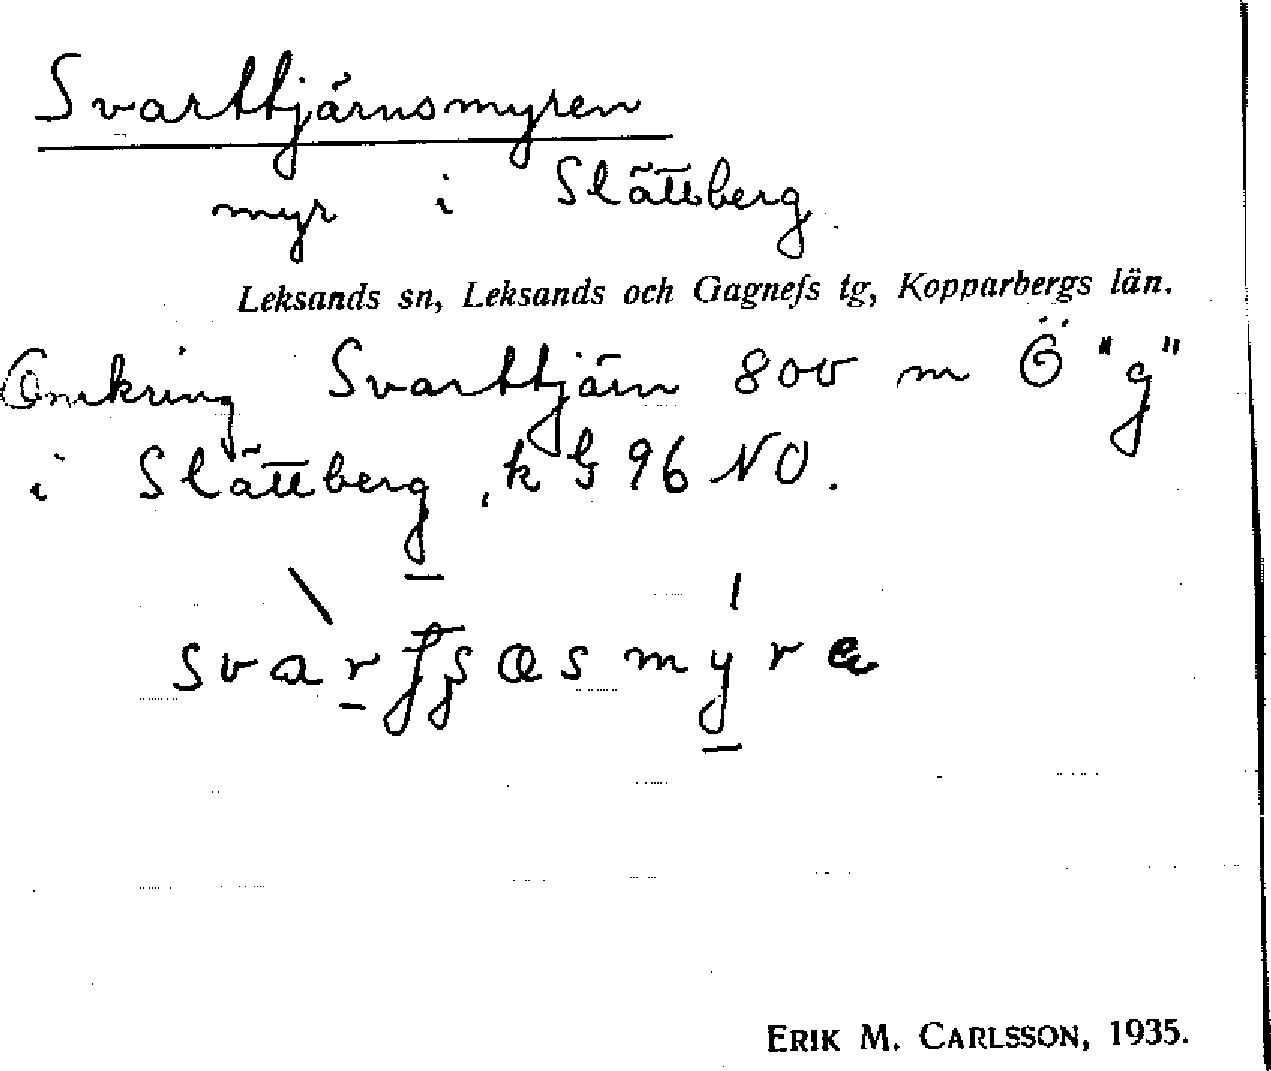 Svarttjärnsmyren
myr i Slättberg
Leksands sn, Leksands och Gagnefs tg, Kopparbergs län.
Omkring Svarttjärn 800 m Ö "g"
i Slättberg, k G 96 NO.
ERIK M. CARLSSON, 1935.